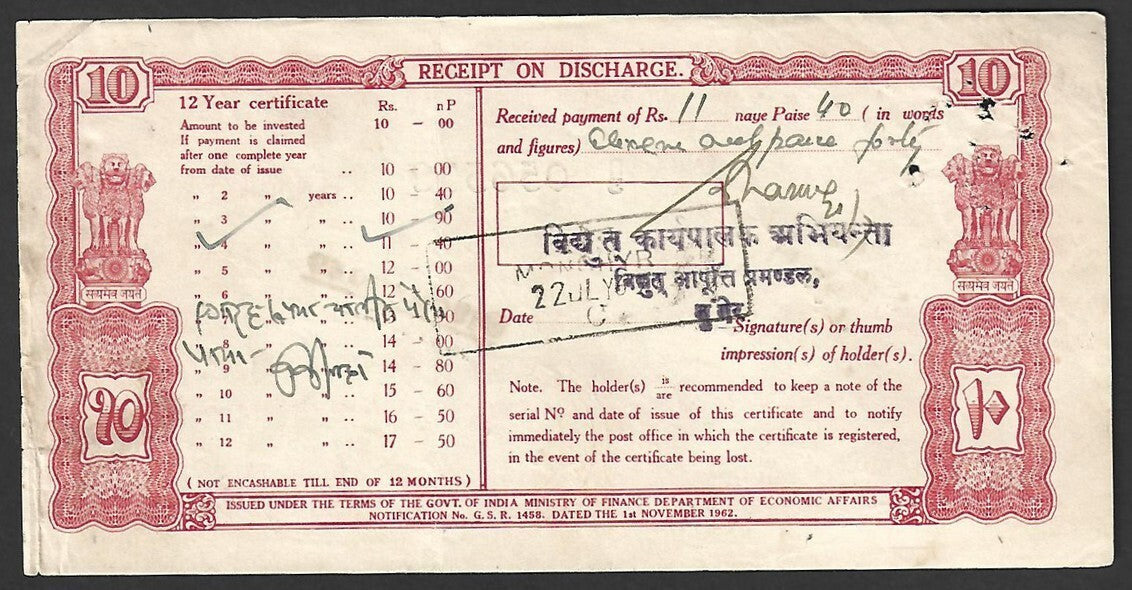 10
RECEIPT ON DISCHARGE.
10
12 Year certificate Rs. n P
Amount to be invested 10 – 00
If payment is claimed
after one complete year
from date of issue .. 10 – 00
„ 2 „ years .. 10 – 40
„ 3 „ „ .. 10 – 90
„ 4 „ „ .. 11 – 40
„ 5 „ „ .. 12 – 00
„ 6 „ „ .. 12 – 60
„ 7 „ „ .. 13 – 30
„ 8 „ „ .. 14 – 00
„ 9 „ „ .. 14 – 80
„ 10 „ „ .. 15 – 60
„ 11 „ „ .. 16 – 50
„ 12 „ „ .. 17 – 50
(NOT ENCASHABLE TILL END OF 12 MONTHS)
Received payment of Rs. 11 naye Paise 40 (in words
and figures) Eleven and paise forty
विद्युत कार्यपालक अभियन्ता
विद्युत् आपूर्ति प्रमण्डल,
मुंगेर
MONGHYR
22 JUL
C
Date
Signature(s) or thumb
impression(s) of holder(s).
Note. The holder(s) is/are recommended to keep a note of the
serial Nº and date of issue of this certificate and to notify
immediately the post office in which the certificate is registered,
in the event of the certificate being lost.
सत्यमेव जयते
सत्यमेव जयते
१०
ISSUED UNDER THE TERMS OF THE GOVT. OF INDIA MINISTRY OF FINANCE DEPARTMENT OF ECONOMIC AFFAIRS
NOTIFICATION No. G. S. R. 1458. DATED THE 1st NOVEMBER 1962.